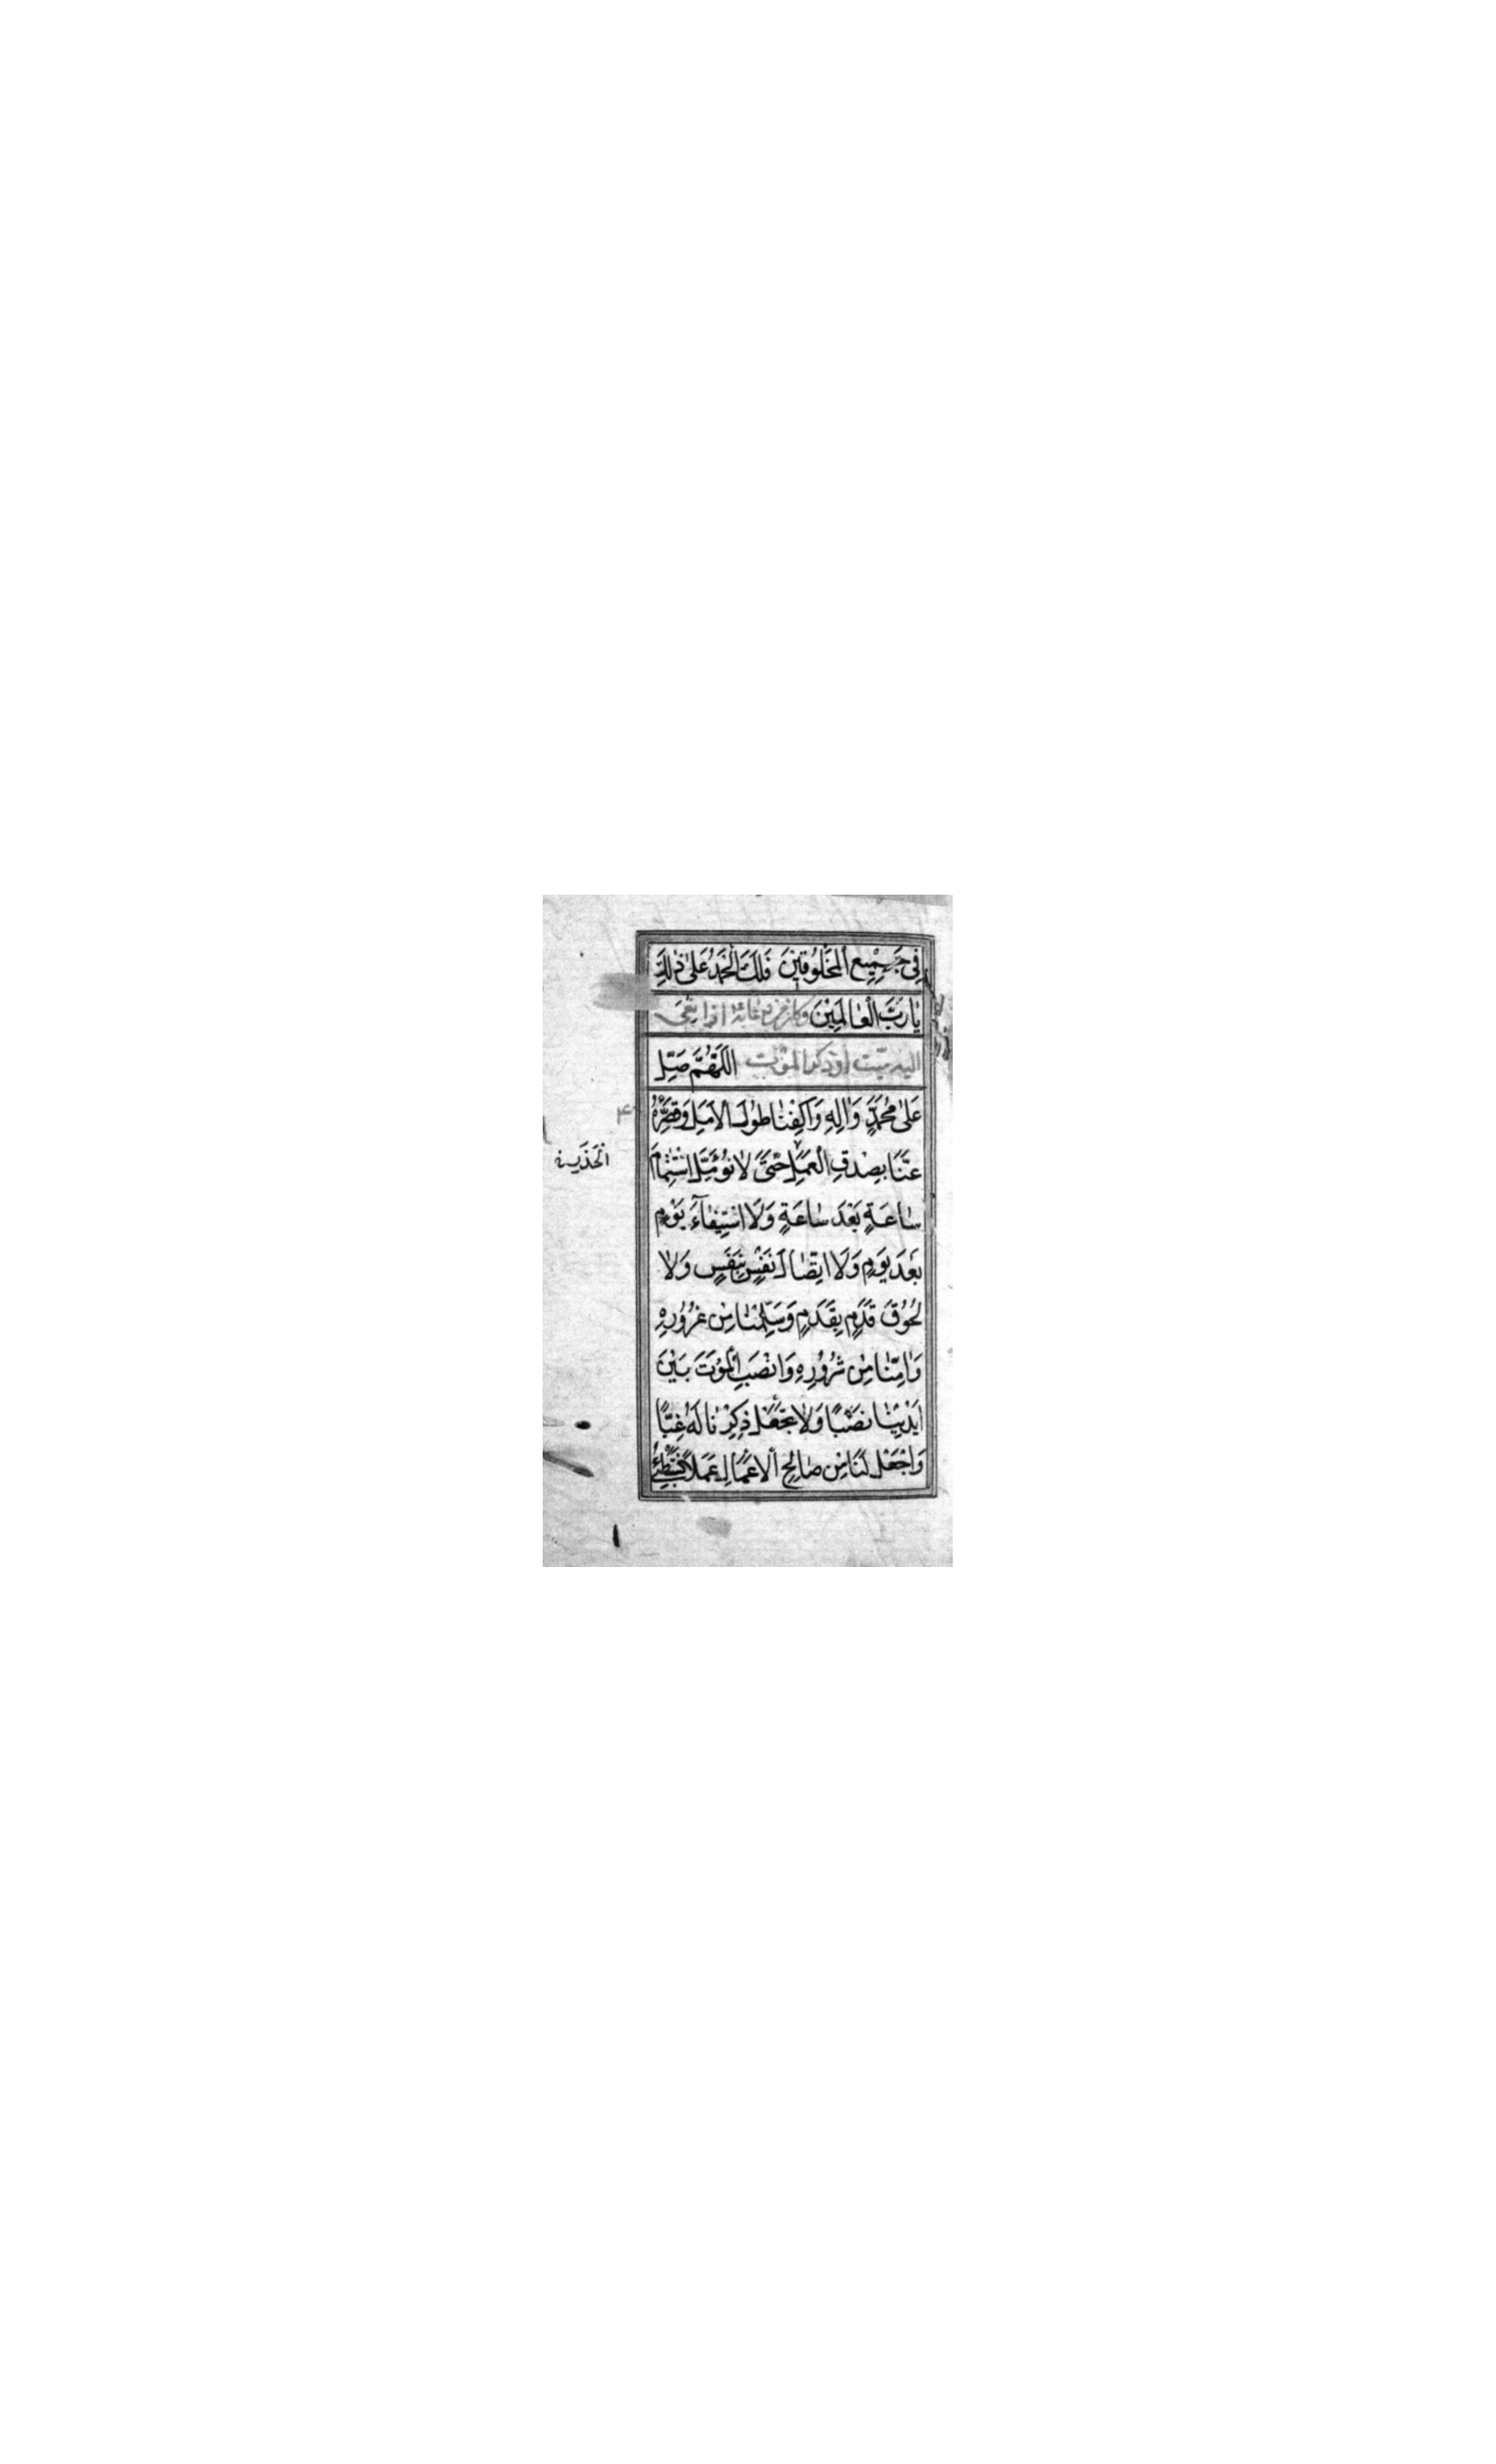 فِي جَمِيعِ الْمَخْلُوقِينَ فَلَكَ الْحَمْدُ عَلَىٰ ذٰلِكَ
يَا رَبَّ الْعَالَمِينَ وكان من دعائه اذا نعى
اليه ميّت او ذكر الموت اَللّٰهُمَّ صَلِّ
عَلىٰ مُحَمَّدٍ وَاٰلِهِ وَاكْفِنَا طُولَ الْاَمَلِ وَقَصِّرْهُ
عَنَّا بِصِدْقِ الْعَمَلِ حَتّىٰ لَا نُؤَمِّلَ اسْتِتْمَامَ
سَاعَةٍ بَعْدَ سَاعَةٍ وَلَا اسْتِيفَاۤءَ يَوْمٍ
بَعْدَ يَوْمٍ وَلَا اتِّصَالَ نَفَسٍ بِنَفَسٍ وَلَا
لُحُوقَ قَدَمٍ بِقَدَمٍ وَسَلِّمْنَا مِنْ غُرُورِهِ
وَاٰمِنَّا مِنْ شُرُورِهِ وَانْصِبِ الْمَوْتَ بَيْنَ
اَيْدِينَا نَصْبًا وَلَا تَجْعَلْ ذِكْرَنَا لَهُ غِبًّا
وَاجْعَلْ لَنَا مِنْ صَالِحِ الْاَعْمَالِ عَمَلًا نَسْتَبْطِئُ